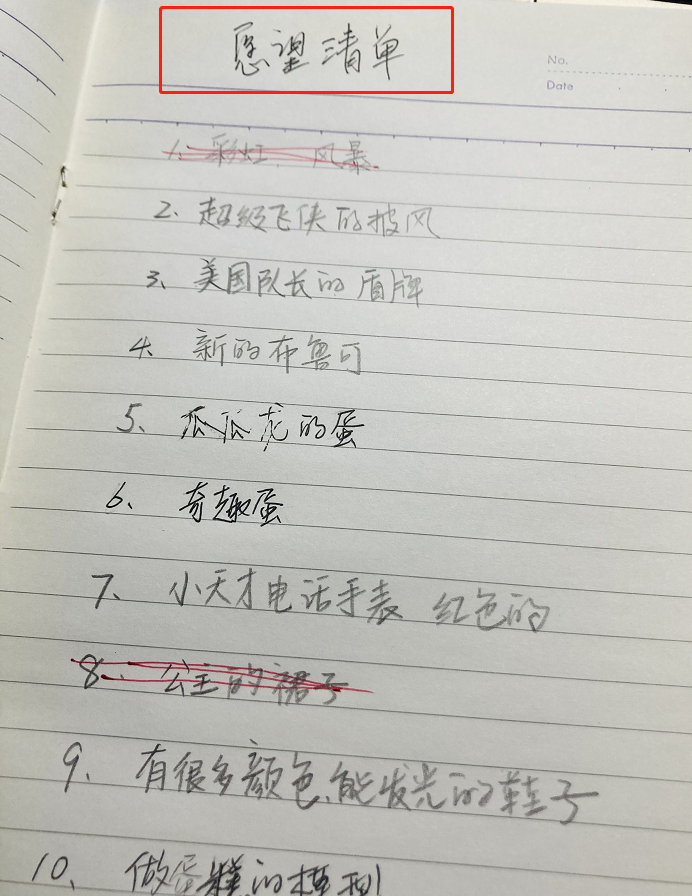 愿望清单
No.
Date
1、彩虹 风暴
2、超级飞侠的披风
3、美国队长的盾牌
4、新的布鲁可
5、瓜瓜龙的蛋
6、奇趣蛋
7、小天才电话手表 红色的
8、公主的裙子
9、有很多颜色、能发光的鞋子
10、做蛋糕的模型